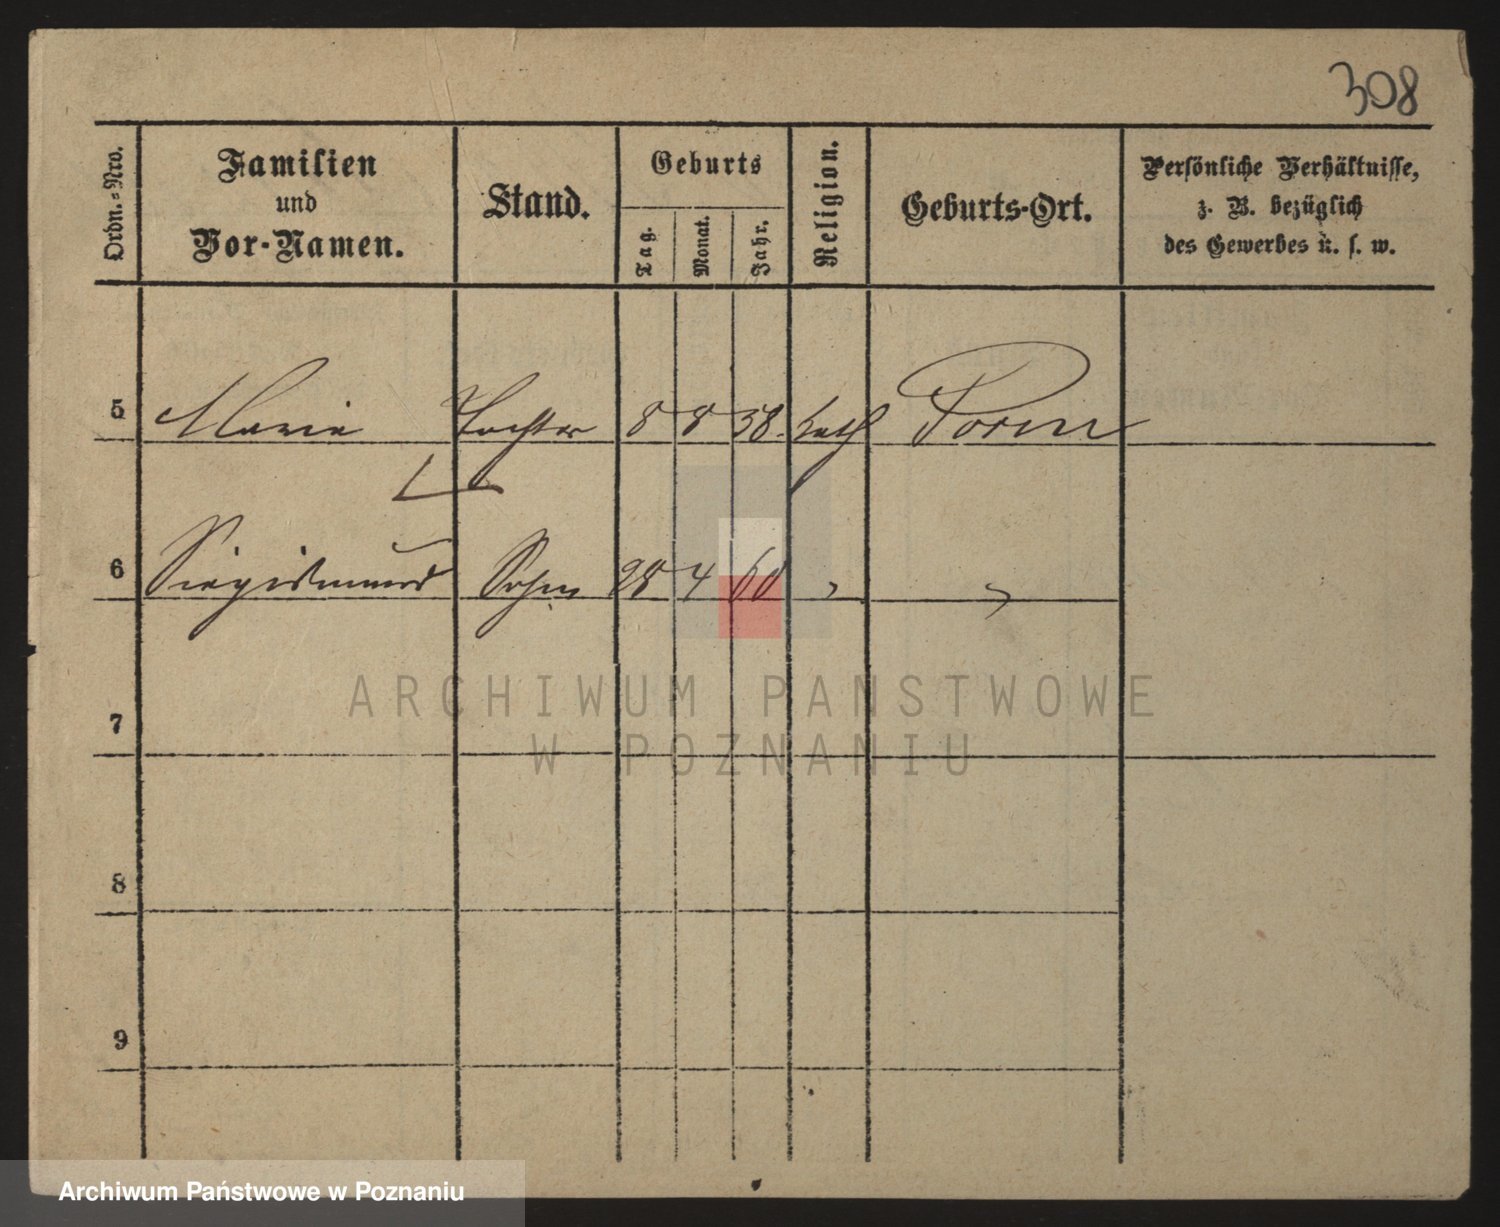 308
Ordn.-Nro.
Familien
und
Vor-Namen.
Stand.
Geburts
Tag.
Monat.
Jahr.
Religion.
Geburts-Ort.
Persönliche Verhältnisse,
z. B. bezüglich
des Gewerbes u. s. w.
5 Marie Tochter 8 8 58. kath
6 Siegismund Sohn 28 4 60 " "
7
8
9
ARCHIWUM PANSTWOWE
W POZNANIU
Archiwum Państwowe w Poznaniu